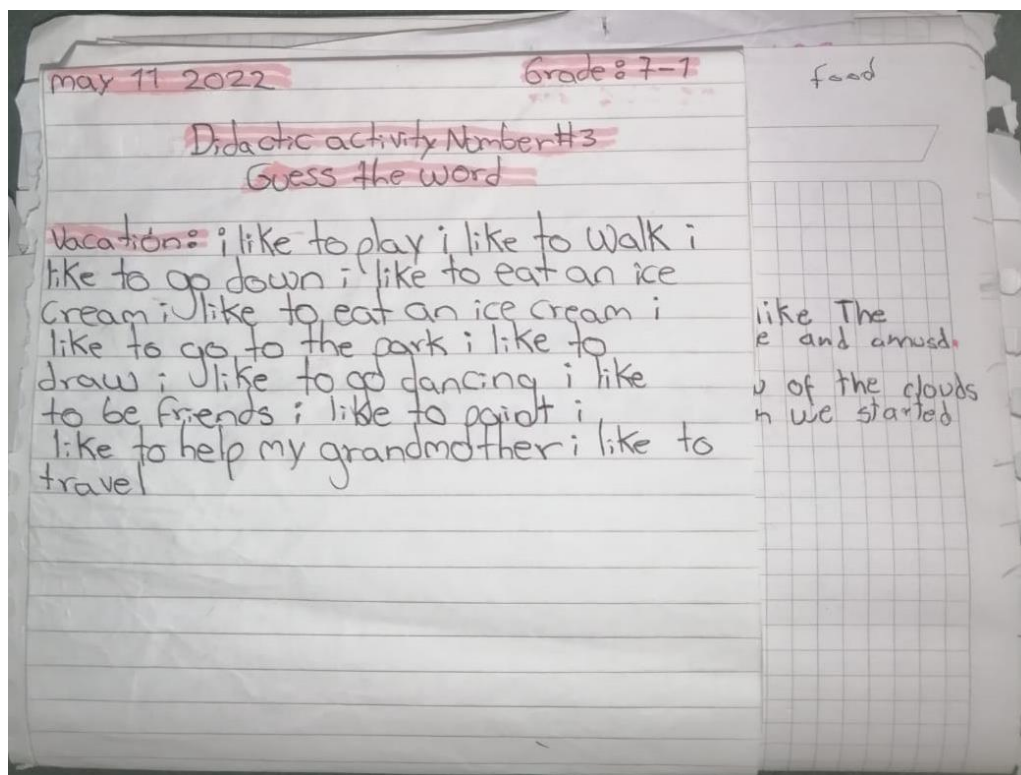 may 11 2022
Grade: 7-1
food
Didactic activity Number #3
Guess the word
Vacatión: i like to play i like to walk i
like to go down i like to eat an ice
cream i like to eat an ice cream i
like to go to the park i like to
draw i like to go dancing i like
to be friends i like to paint i
like to help my grandmother i like to
travel
like The
e and amusd.
of the clouds
n we started